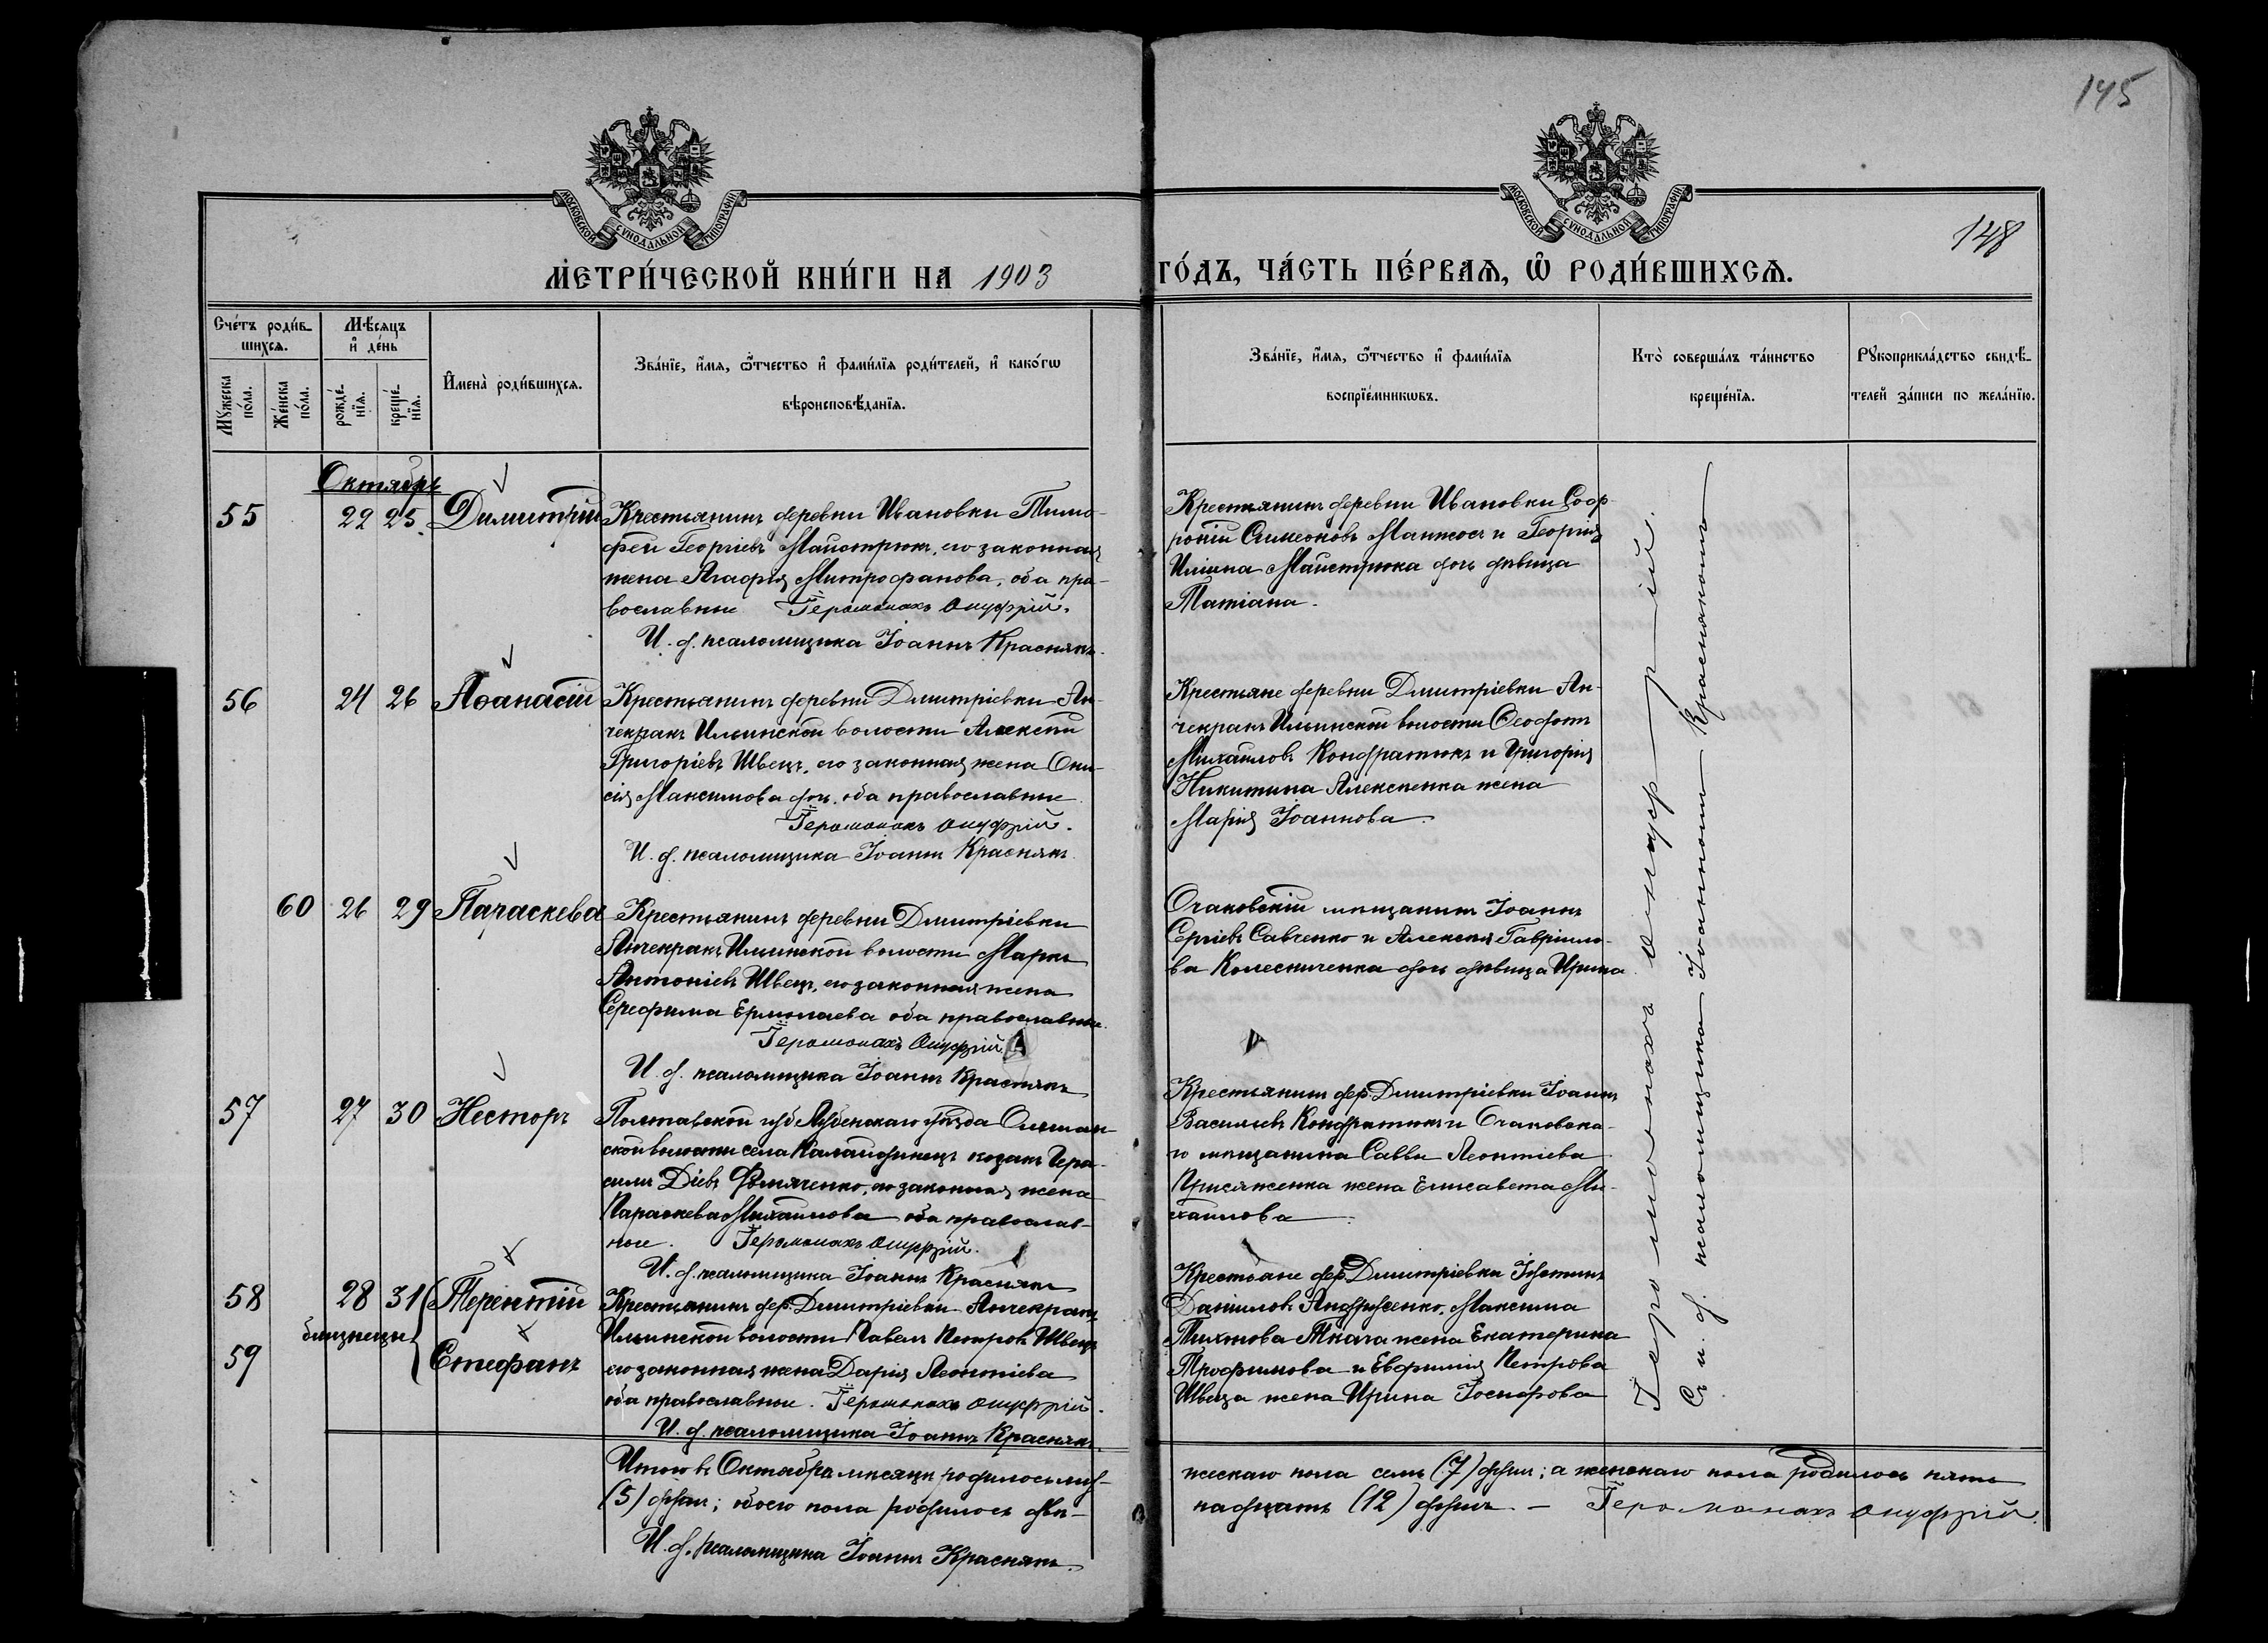 145
148
МОСКОВСКОЙ СѴНОДАЛЬНОЙ ТИПОГРАФІИ
МОСКОВСКОЙ СѴНОДАЛЬНОЙ ТИПОГРАФІИ
МЕТРИ́ЧЕСКОЙ КНИ́ГИ НА 1903 ГО́ДЪ, ЧА́СТЬ ПЕ́РВАѦ, Ѡ҆ РОДИ́ВШИХСѦ.
Сче́тъ роди́в-
шихсѧ.
Мѣ́сѧцъ
и҆ де́нь
Мꙋ́жеска
по́ла.
Же́нска
по́ла.
рожде́-
нїѧ.
креще́-
нїѧ.
И҆мена̀ роди́вшихсѧ.
Зва́нїе, и҆́мѧ, ѻ҆́тчество и҆ фами́лїѧ роди́телей, и҆ како́гѡ
вѣроисповѣ́данїѧ.
Зва́нїе, и҆́мѧ, ѻ҆́тчество и҆ фами́лїѧ
воспрїе́мникѡвъ.
Кто̀ соверша́лъ та́инство
креще́нїѧ.
Рꙋкоприкла́дство свидѣ́-
телей за́писи по жела́нїю.
Октябрь
55 22 25 Димитрій
Крестьянинъ деревни Ивановки Тимо-
фей Георгіевъ Майстрюкъ, его законная
жена Агафія Митрофанова, оба пра-
вославные. Іеромонахъ Онуфрій.
И. д. псаломщика Іоаннъ Краснякъ.
Крестьянинъ деревни Ивановки Соф-
роній Симеоновъ Манжосъ и Георгія
Иліина Майстрюка дочь дѣвица
Татіана.
56 24 26 Аѳанасій
Крестьянинъ деревни Дмитріевки Ан-
чекракъ Ильинской волости Алексѣй
Григоріевъ Швецъ, его законная жена Они-
сія Максимова дочь, оба православные
Іеромонахъ Онуфрій.
И. д. псаломщика Іоаннъ Краснякъ
Крестьяне деревни Дмитріевки Ан-
чекракъ Ильинской волости Ѳеодотъ
Михаиловъ Кондратюкъ и Григорія
Никитина Алексѣенка жена
Марія Іоаннова.
60 26 29 Параскева
Крестьянинъ деревни Дмитріевки
Анчекракъ Ильинской волости Маркъ
Антоніевъ Швецъ, его законная жена
Серафима Ермолаева оба православные.
Іеромонахъ Онуфрій
И. д. псаломщика Іоаннъ Краснякъ
Очаковскій мѣщанинъ Іоаннъ
Сергіевъ Савченко и Алексія Гавріило-
ва Колесниченка дочь дѣвица Ирина
57 27 30 Несторъ
Полтавской губ Лубенскаго уѣзда
ской волости села Калайдинецъ козакъ Гера-
симъ Діевъ его законная жена
Параскева Михаилова оба православ-
ные. Іеромонахъ Онуфрій.
И. д. псаломщика Іоаннъ Краснякъ
Крестьянинъ дер. Дмитріевки Іоаннъ
Василіевъ Кондратюкъ и Очаковска-
го мѣщанина Саввы Леонтіева
Присяженка жена Елисавета Ми-
хаилова.
58 28 31 Терентій
близнецы
59 Стефанъ
Крестьянинъ дер. Дмитріевки Анчекракъ
Ильинской волости Павелъ Петровъ Швецъ
его законная жена Дарія Леонтіева
оба православные. Іеромонахъ Онуфрій.
И. д. псаломщика Іоаннъ Краснякъ.
Крестьяне дер. Дмитріевки Іустинъ
Даніиловъ Андрусенко, Максима
Тихонова Ткача жена Екатерина
Трофимова и Евфимія Петрова
Швеца жена Ирина Іосифова
Іеромонахъ Онуфрій.
Съ и. д. псаломщика Іоанномъ Краснякомъ
Итого въ Октябрѣ мѣсяцѣ родилось муж-
ческаго пола семь (7) душъ; а женскаго пола родилось пять
(5) душъ; обоего пола родилось двѣ-
надцать (12) душъ. — Іеромонахъ Онуфрій.
И. д. псаломщика Іоаннъ Краснякъ.